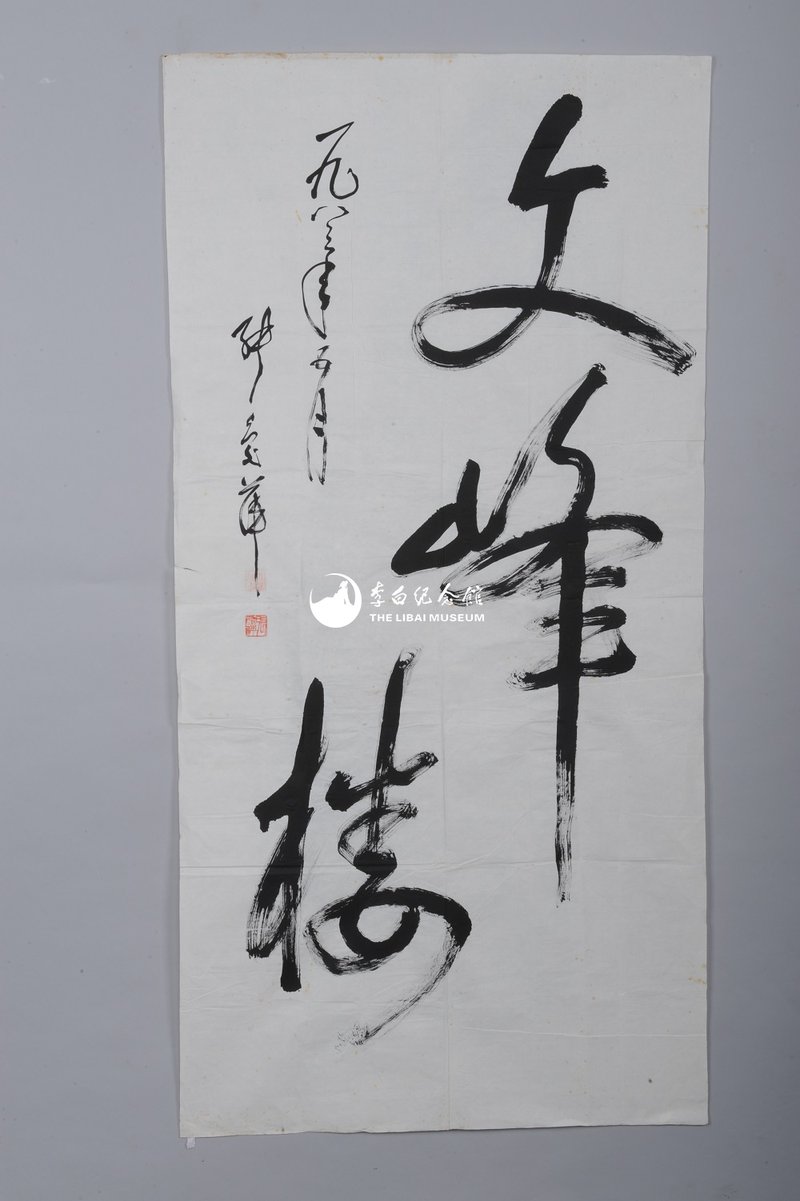 文峰樓
一九八三年五月
李白纪念馆
THE LIBAI MUSEUM